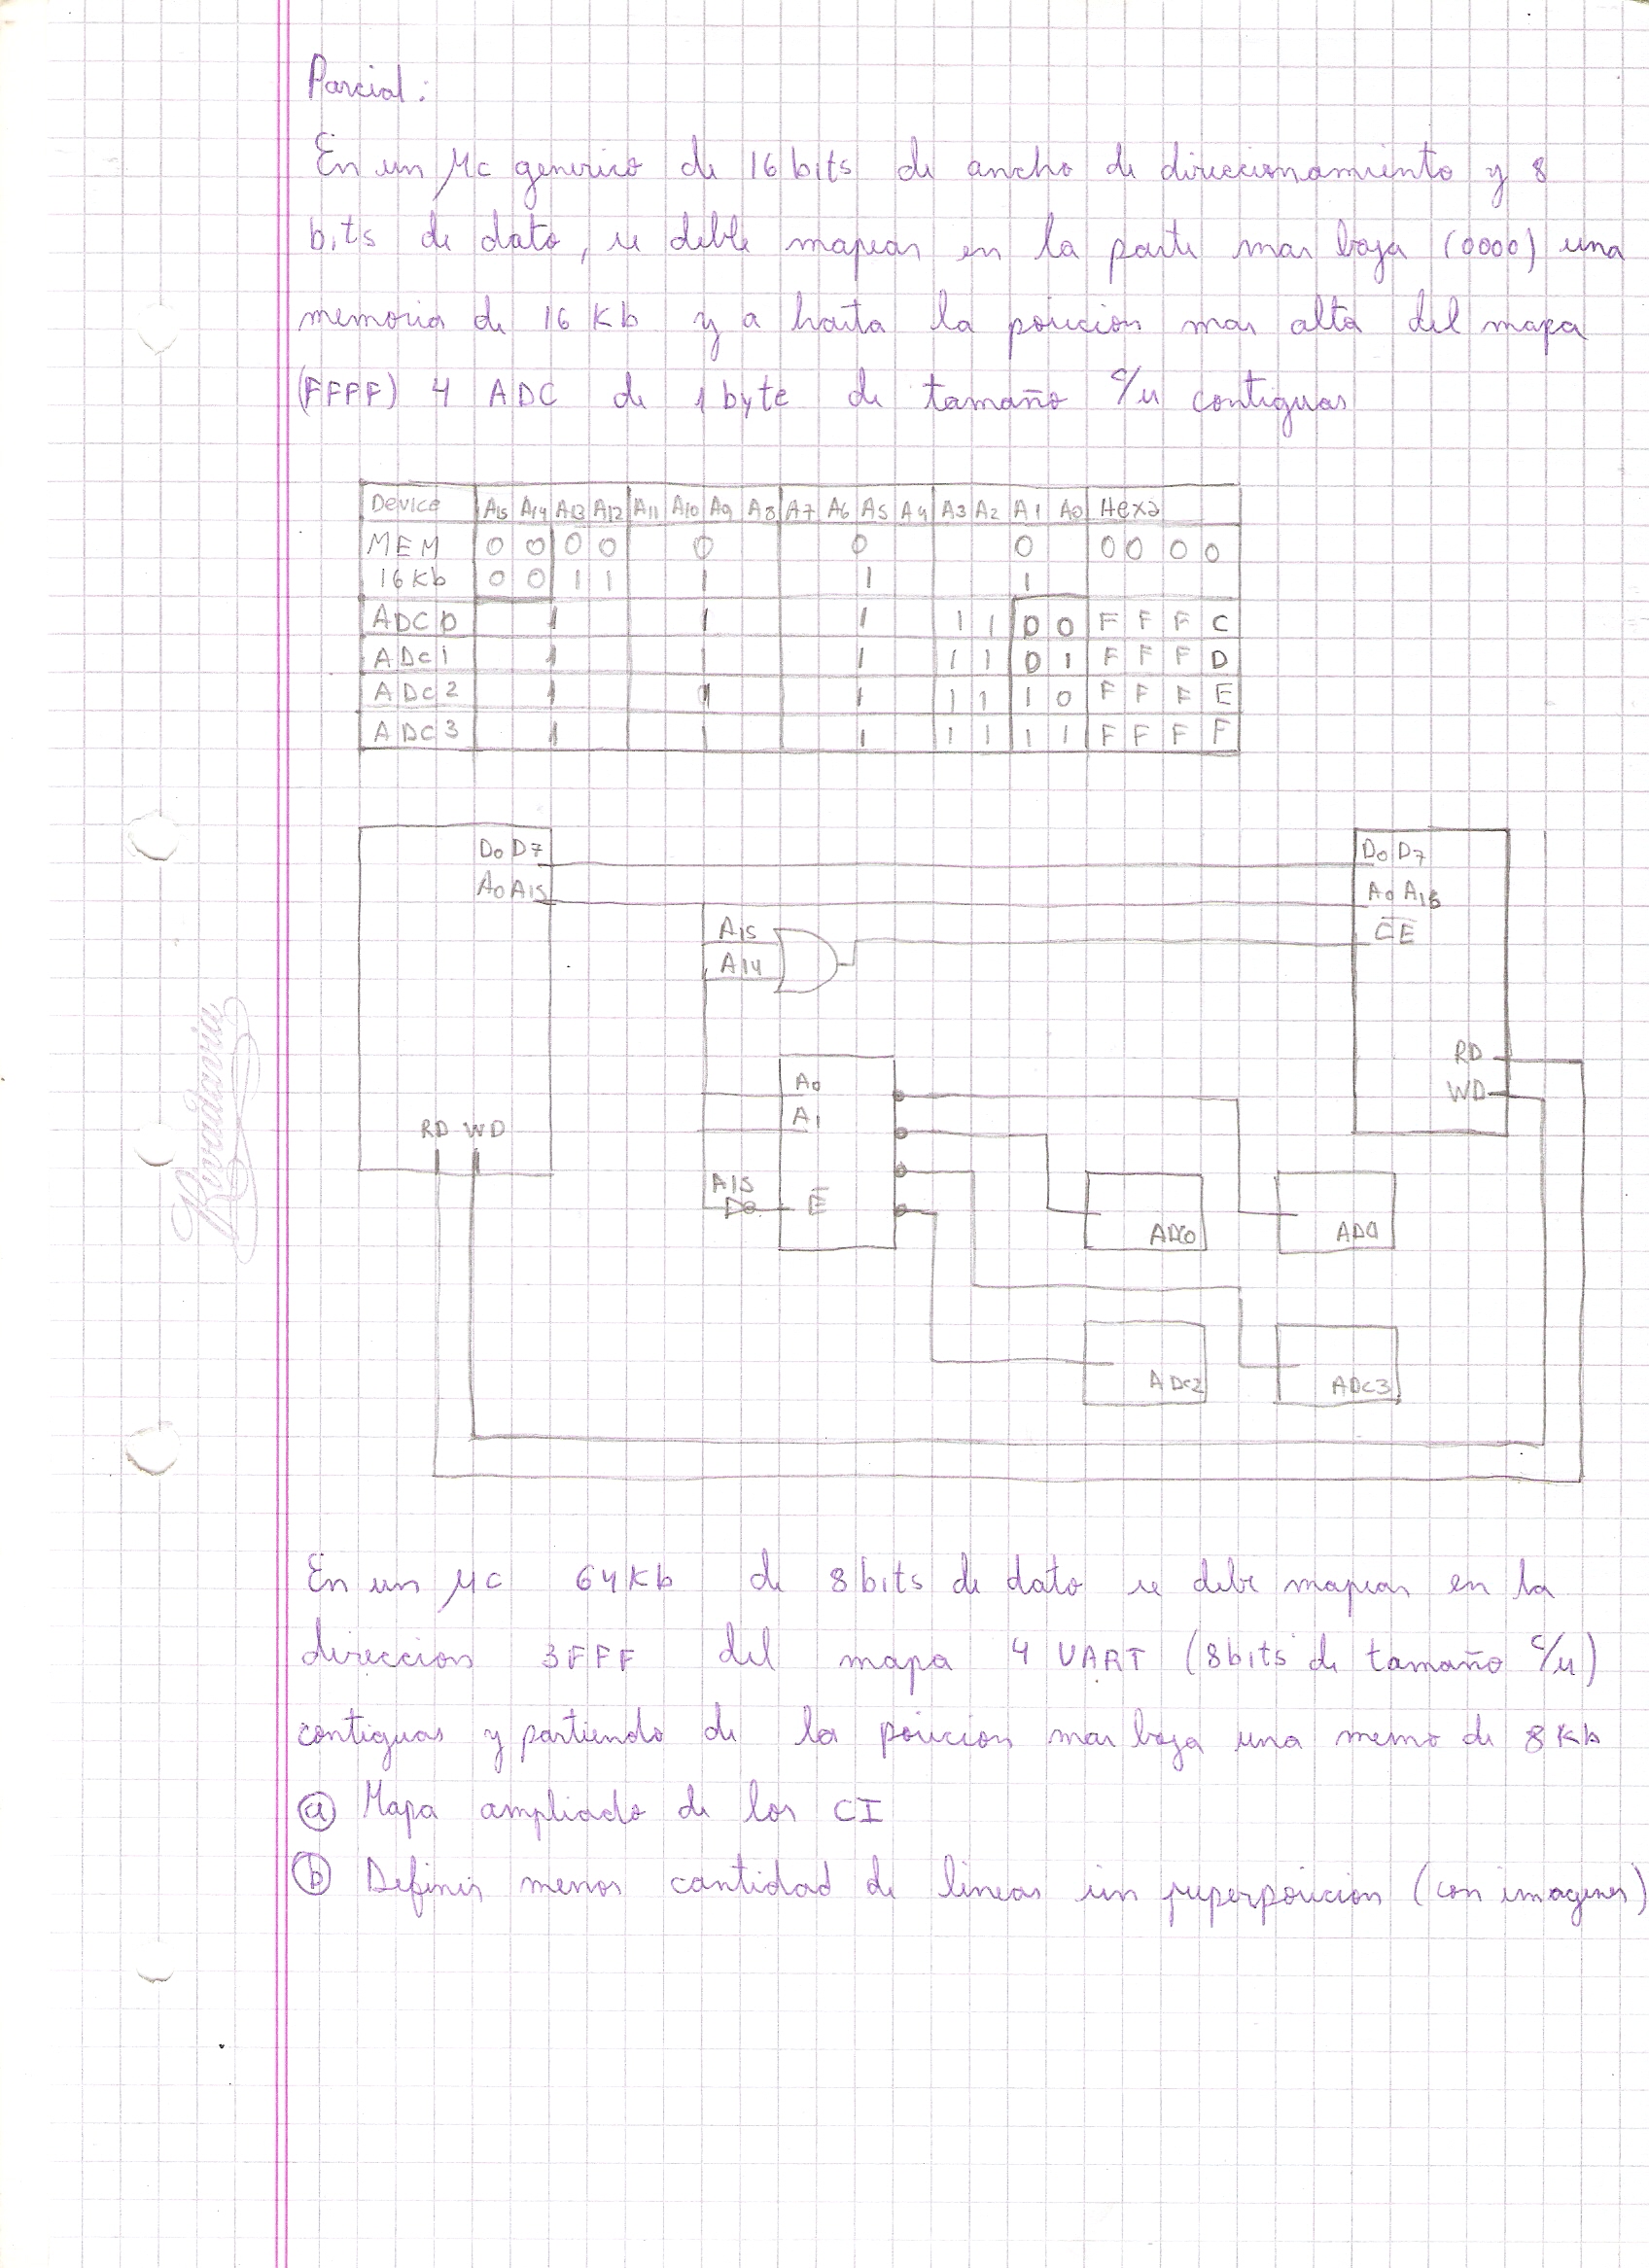 Parcial:
En un μc generico de 16 bits de ancho de direccionamiento y 8
bits de dato, se deble mapear en la parte mas baja (0000) una
memoria de 16 Kb y a hasta la posicion mas alta del mapa
(FFFF) 4 ADC de 1 byte de tamaño c/u contiguas
Device A15 A14 A13 A12 A11 A10 A9 A8 A7 A6 A5 A4 A3 A2 A1 A0 Hexa
MEM 0 0 0 0 0 0 0 0 0 0 0
16Kb 0 0 1 1 1 1 1
ADC0 1 1 1 1 1 0 0 F F F C
ADC1 1 1 1 1 1 0 1 F F F D
ADC2 1 1 1 1 1 1 0 F F F E
ADC3 1 1 1 1 1 1 1 F F F F
D0 D7 D0 D7
A0 A15 A0 A15
A15 CE
A14
RD
A0
WD
A1
RD WD
A15
E
ADC0 ADC1
ADC2 ADC3
En un μC 64Kb de 8bits de dato se debe mapear en la
direccion 3FFF del mapa 4 UART (8bits de tamaño c/u)
contiguas y partiendo de la posicion mas baja una memo de 8Kb
a Mapa ampliado de los CI
b Definir menor cantidad de lineas sin superposicion (con imagenes)
Rivadavia